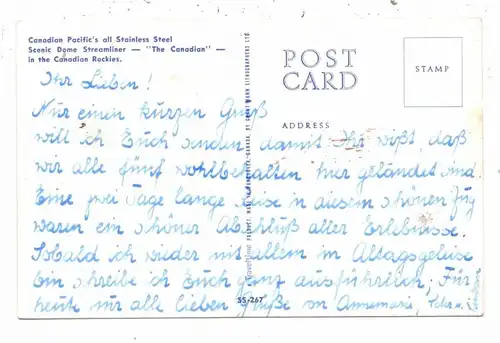 Canadian Pacific's all Stainless Steel
Scenic Dome Streamliner — "The Canadian" —
in the Canadian Rockies.
POST
CARD
STAMP
ADDRESS
Ihr Lieben!
Nur einen kurzen Gruß
will ich Euch senden damit Ihr wißt, daß
wir alle fünf wohlbehalten hier gelandet sind
Eine zwei Tage lange Reise in diesem schönen Zug
waren ein schöner Abschluß aller Erlebnisse.
Sobald ich wieder mit allem im Altagsgeleise
bin schreibe ich Euch ganz ausführlich. Für
heute nur alle lieben Grüße von Annemarie,
SS-267